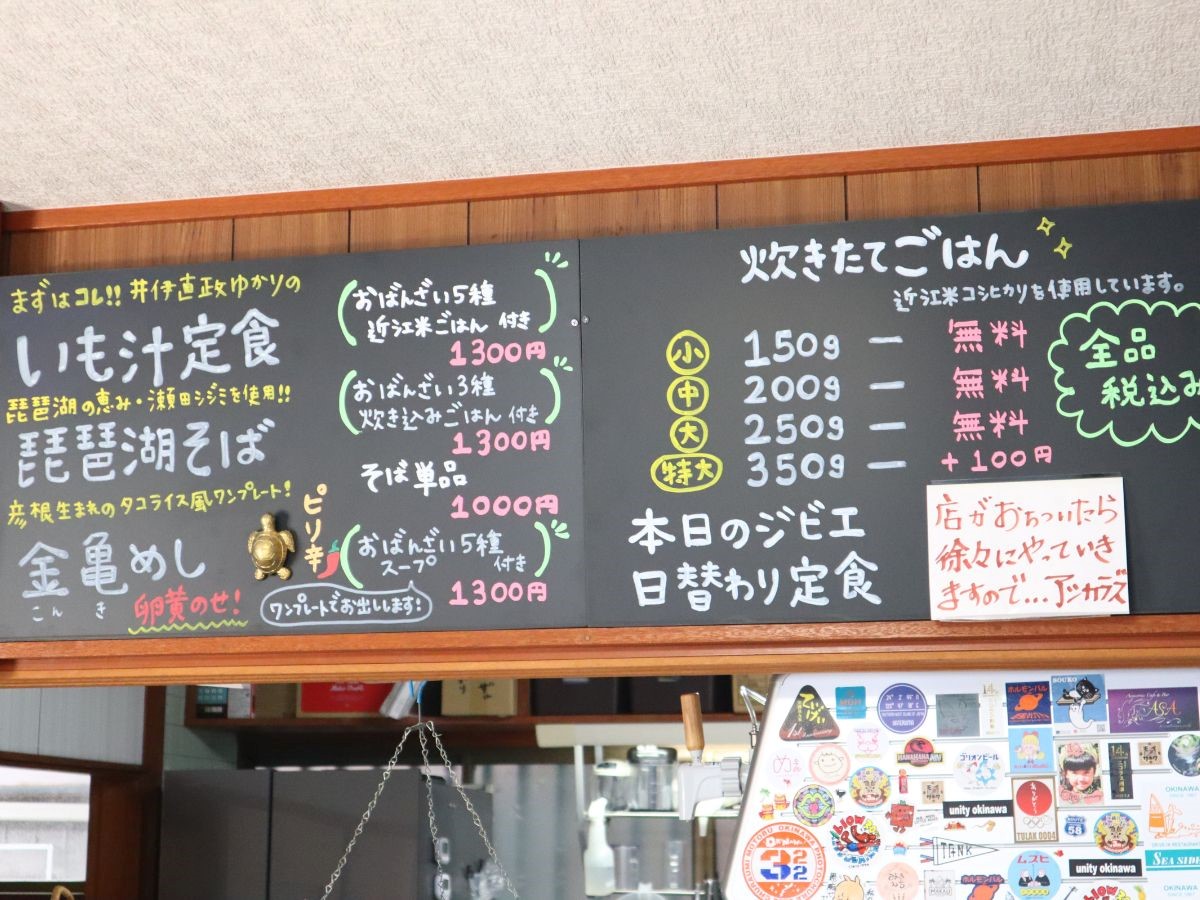 まずはコレ!!井伊直政ゆかりの
いも汁定食
おばんざい5種
近江米ごはん 付き
1300円
琵琶湖の恵み・瀬田シジミを使用!!
琵琶湖そば
おばんざい3種
炊き込みごはん 付き
1300円
そば単品
1000円
彦根生まれのタコライス風ワンプレート!
金亀めし
こんき
卵黄のせ!
ピリ辛
おばんざい5種
スープ 付き
ワンプレートでお出しします!
1300円
炊きたてごはん
近江米コシヒカリを使用しています。
小 150g ー 無料
中 200g ー 無料
大 250g ー 無料
特大 350g ー +100円
全品
税込み
本日のジビエ
日替わり定食
店がおちついたら
徐々にやっていき
ますので...アシカラズ
ていげい
ホルモンバル
SOUKO
ASA
HAMAHAMA
ゴリオンビール
unity okinawa
TULAK 0004
58
OKINAWA
322
I THNK
ムスビ
unity okinawa
SEA SIDE
ホルモンバル
OKINAWA